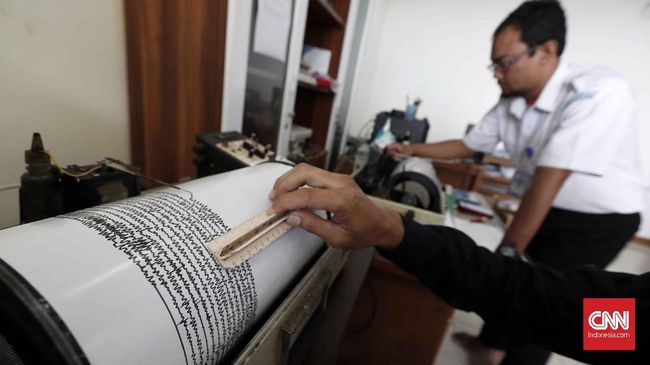 CNN
Indonesia.com